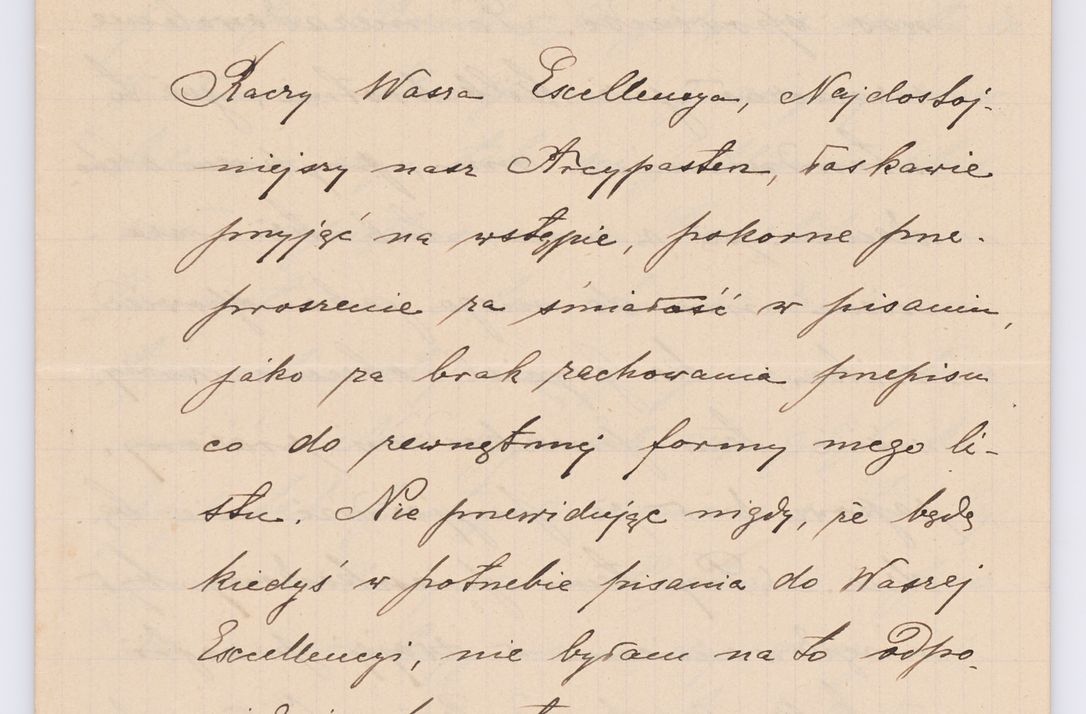 Raczy Wasza Excellencya, Najdostoj-
niejszy nasz Arcypasterz, łaskawie
przyjąć na wstępie, pokorne prze-
proszenie za śmiałość w pisaniu,
jako za brak zachowania przepisu
co do zewnętrznej formy mego li-
stu. Nie przewidując nigdy, że będę
kiedyś w potrzebie pisania do Waszej
Excellencyi, nie byłam na to odpo-